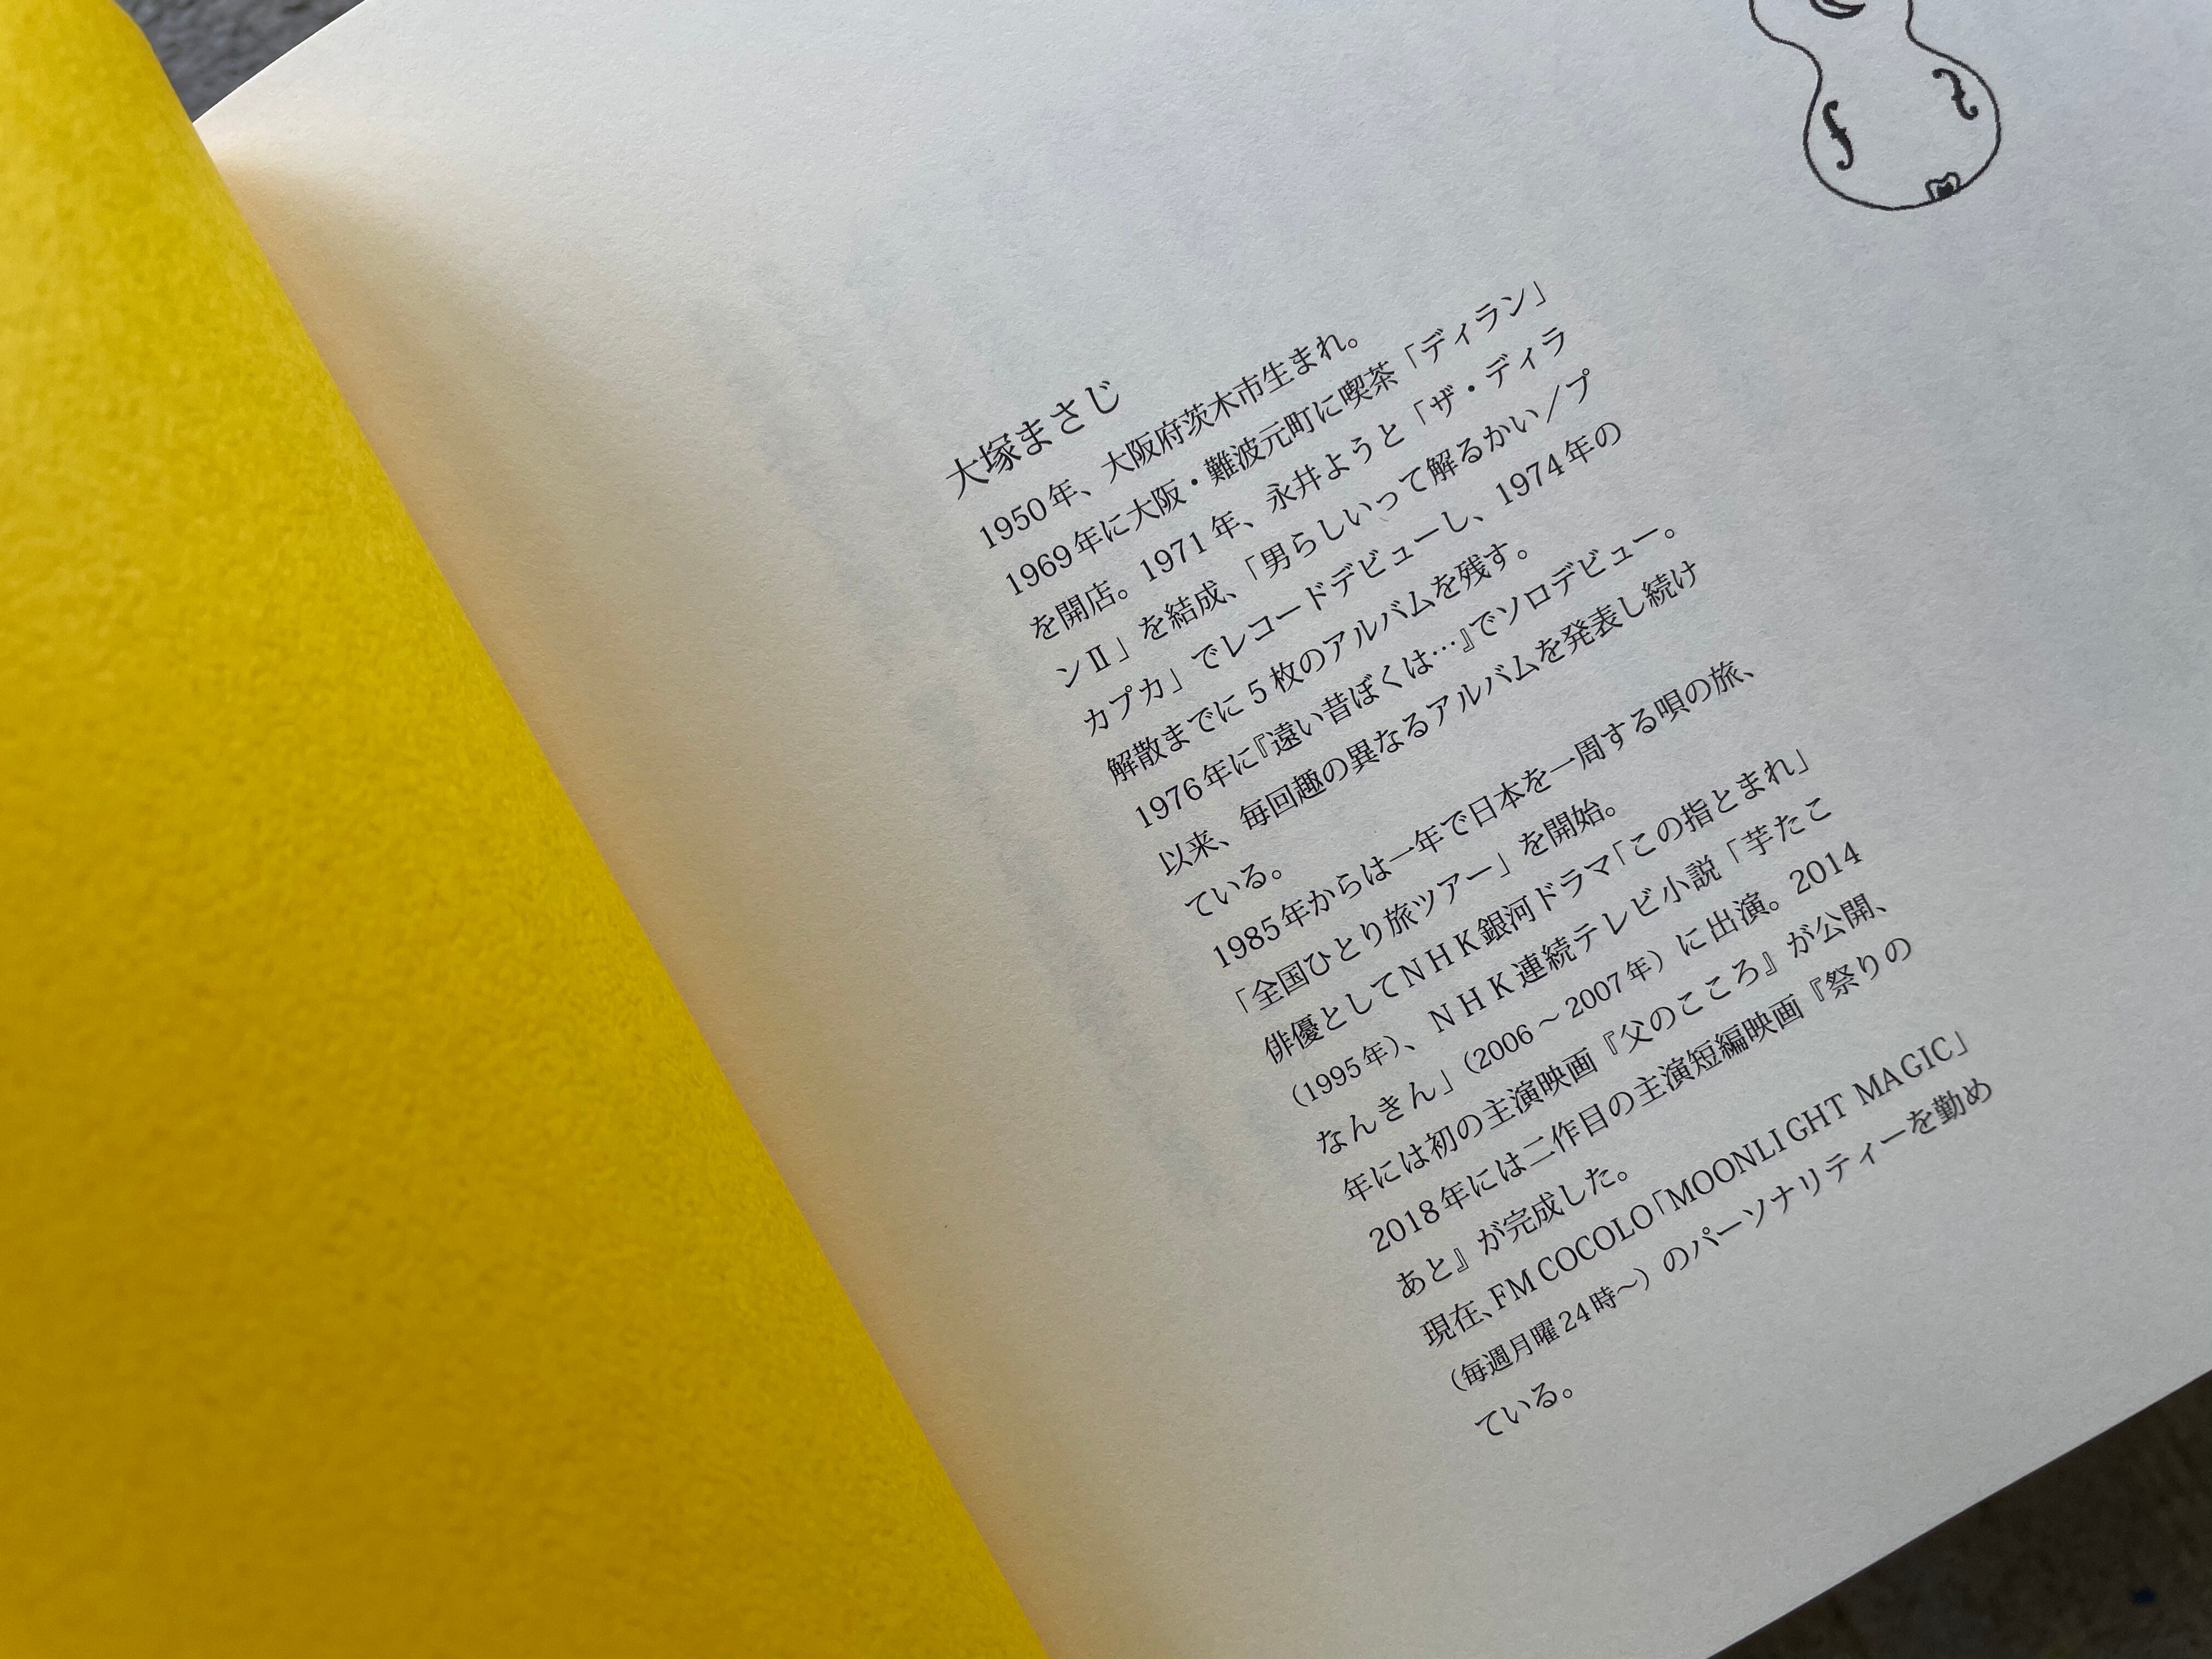 大塚まさじ
1950年、大阪府茨木市生まれ。
1969年に大阪・難波元町に喫茶「ディラン」
を開店。1971年、永井ようと「ザ・ディラ
ンⅡ」を結成、「男らしいって解るかい／プ
カプカ」でレコードデビューし、1974年の
解散までに5枚のアルバムを残す。
1976年に『遠い昔ぼくは…』でソロデビュー。
以来、毎回趣の異なるアルバムを発表し続け
ている。
1985年からは一年で日本を一周する唄の旅、
「全国ひとり旅ツアー」を開始。
俳優としてNHK銀河ドラマ「この指とまれ」
（1995年）、NHK連続テレビ小説「芋たこ
なんきん」（2006～2007年）に出演。2014
年には初の主演映画『父のこころ』が公開、
2018年には二作目の主演短編映画『祭りの
あと』が完成した。
現在、FM COCOLO「MOONLIGHT MAGIC」
（毎週月曜24時～）のパーソナリティーを勤め
ている。